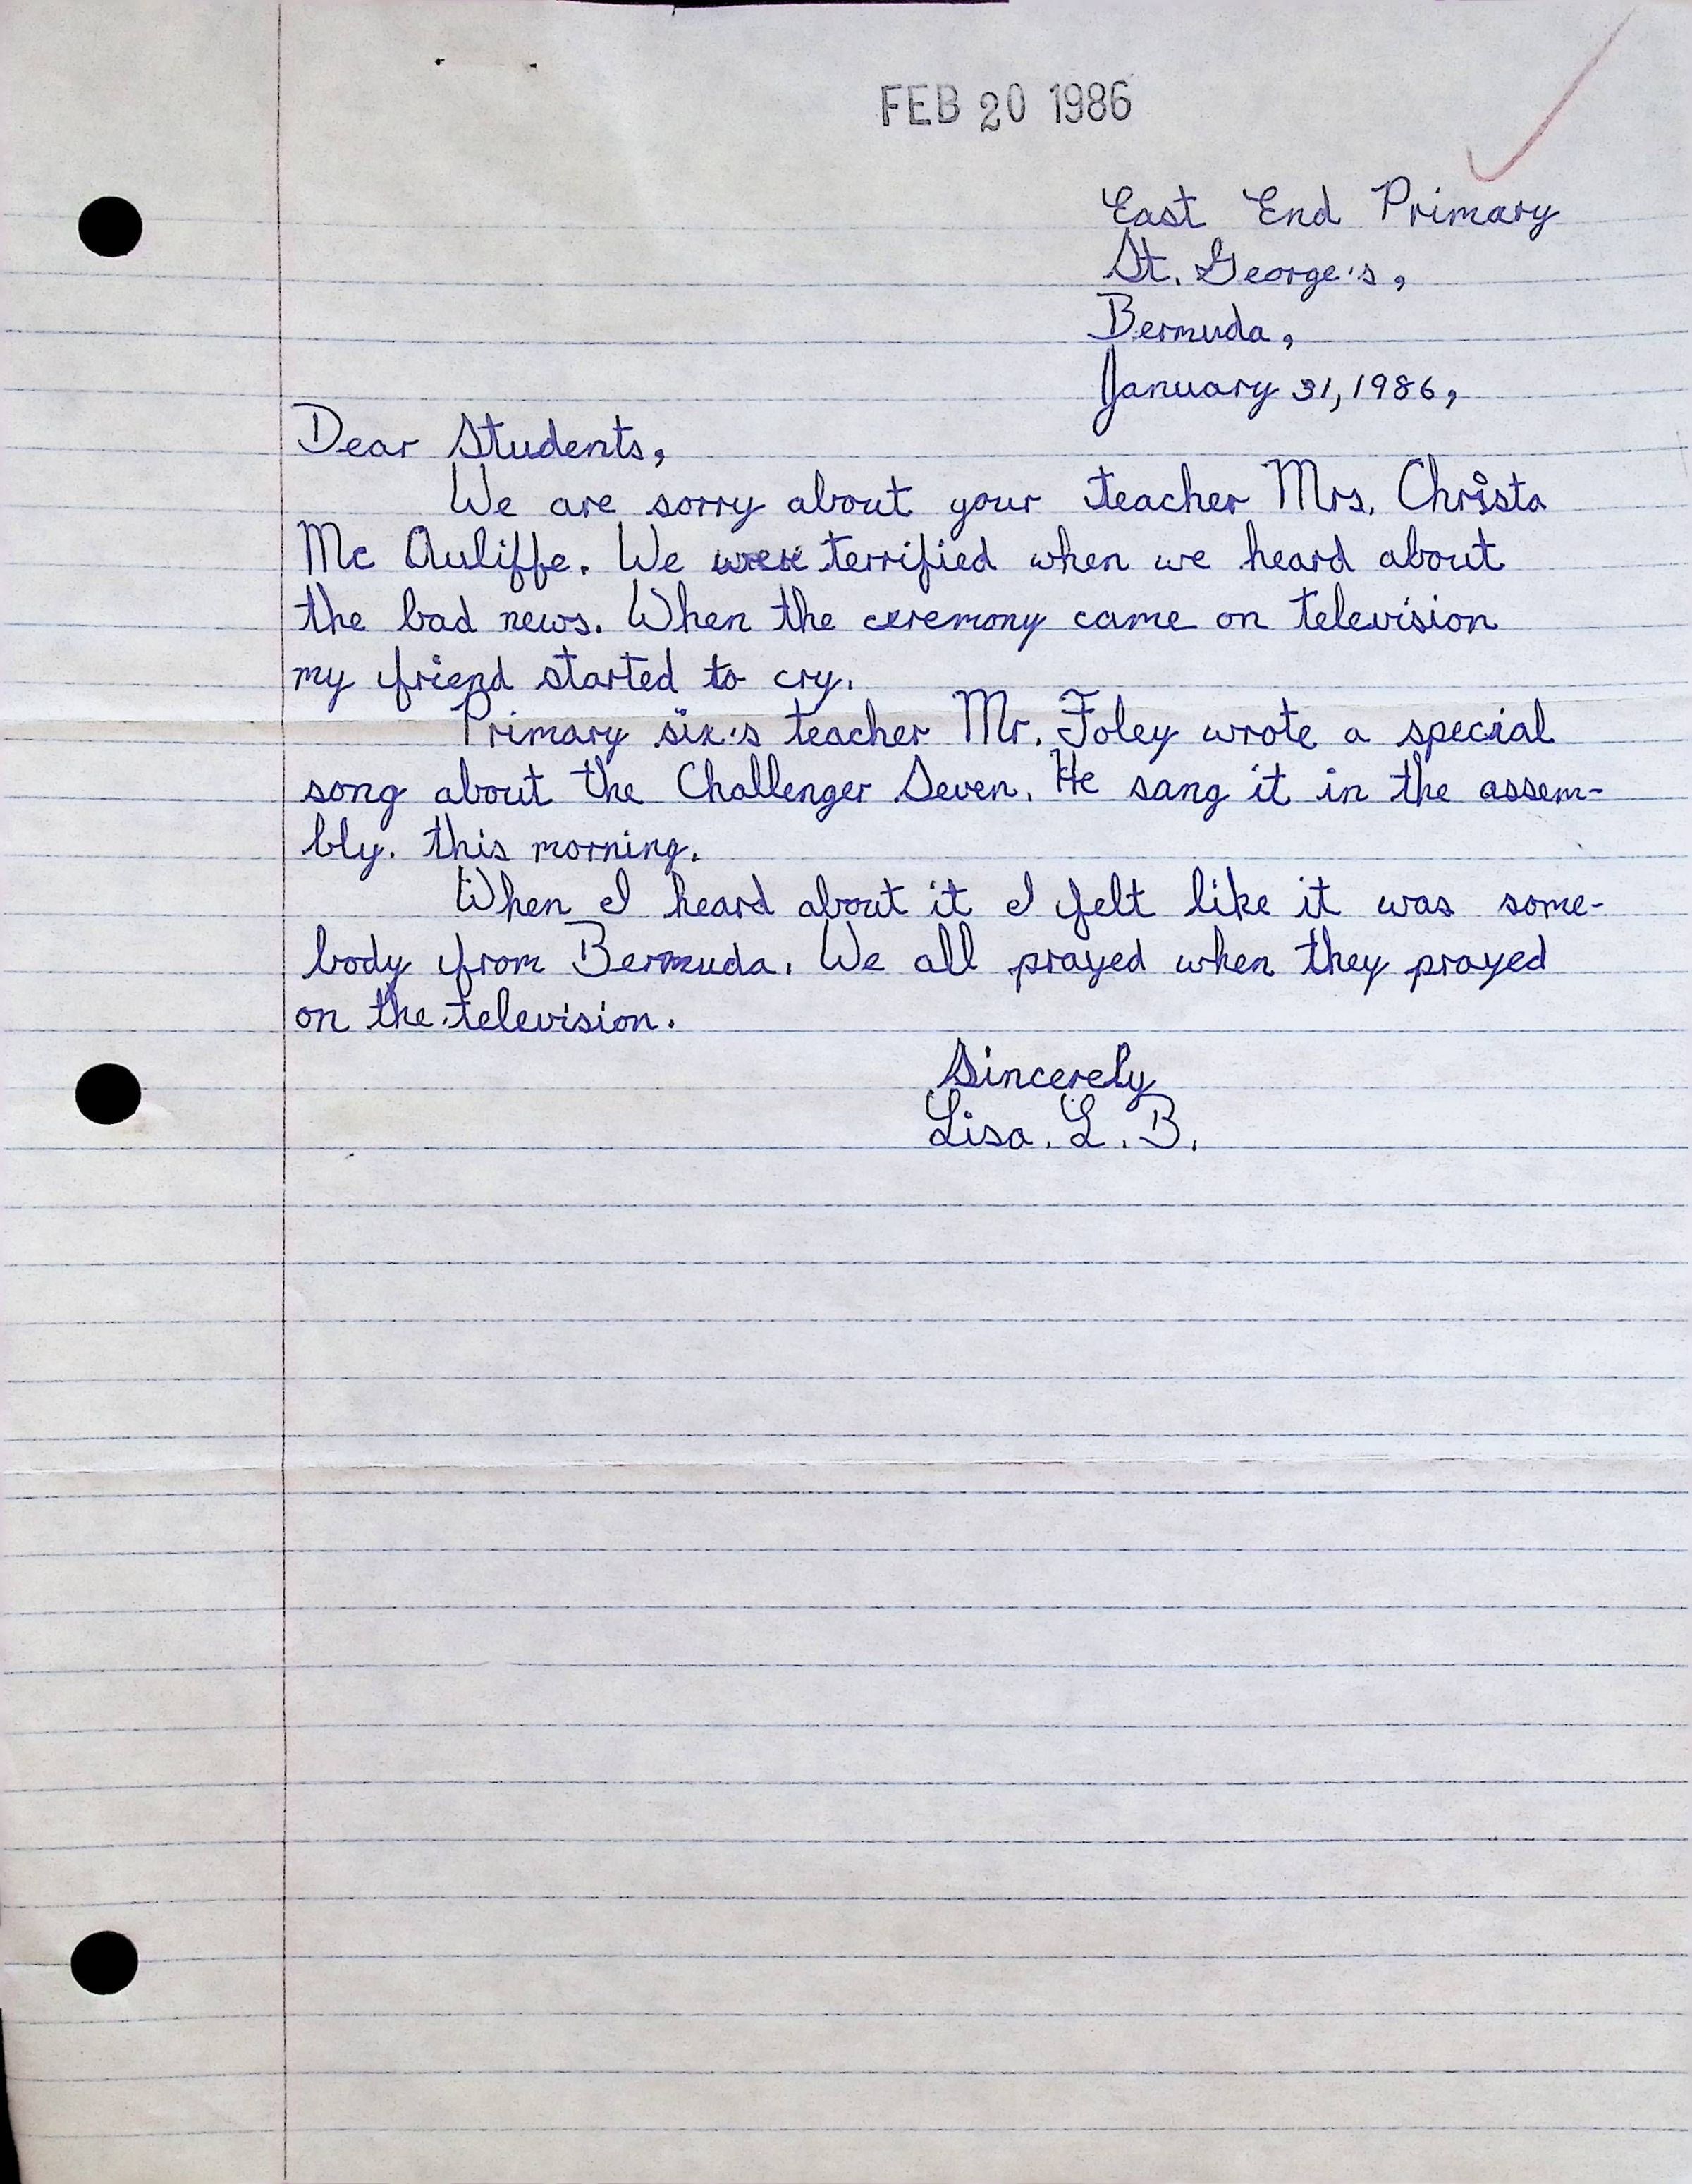 FEB 20 1986
East End Primary
St. George's,
Bermuda,
January 31, 1986,
Dear Students,
We are sorry about your teacher Mrs. Christa
Mc Auliffe. We were terrified when we heard about
the bad news. When the ceremony came on television
my friend started to cry.
Primary six's teacher Mr. Foley wrote a special
song about the Challenger Seven. He sang it in the assem-
bly. this morning.
When I heard about it I felt like it was some-
body from Bermuda. We all prayed when they prayed
on the television.
Sincerely
Lisa. L. B.